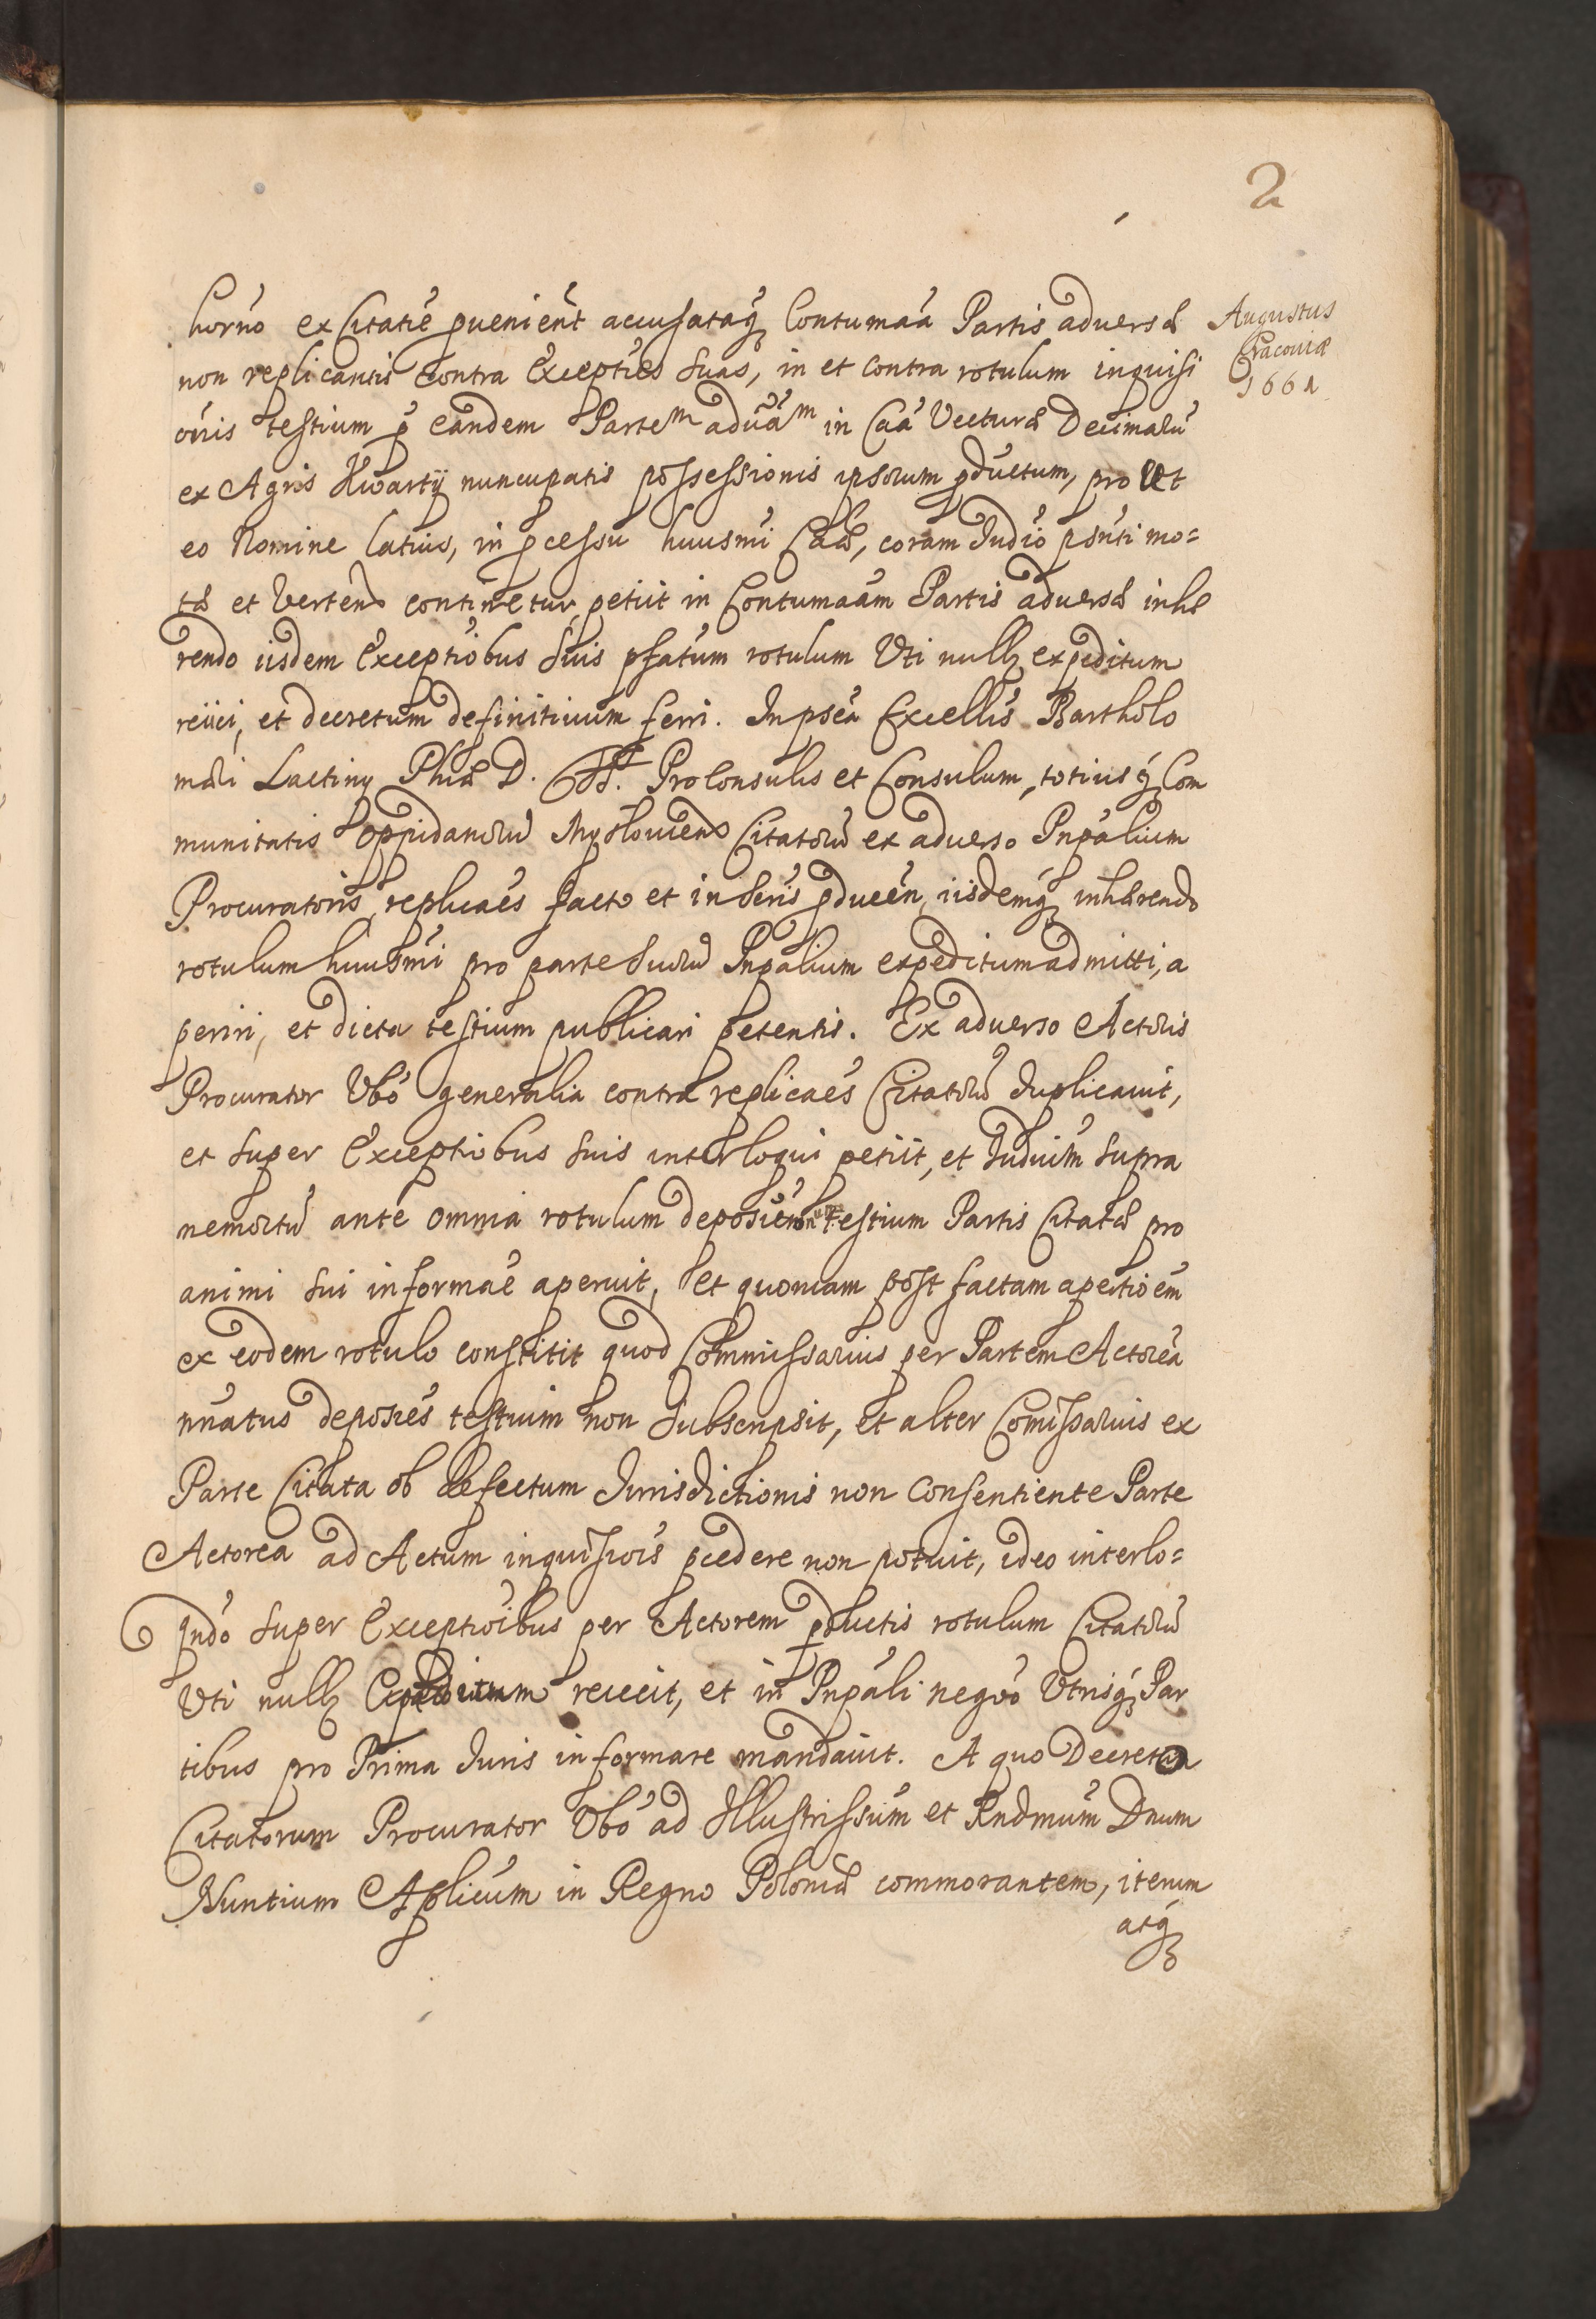 2
Augustus
Cracoviæ
1661
horno ex Citatie pvenient accusataq Contumaa Partis adversæ
non replicantis contra Excepties suas, in et contra rotulum inquisi
oiris testium p eandem Partem aduam in Caa Vecturæ Decimaru
ex Agris Kwarty nuncupatis possessionis ipsorum pductum, pro Ut
eo Nomine latius, in pcessu huusmi Caæ, coram Judio psnti mo=
tæ et verten continetur, petiit in Contumaam Partis adversæ inhæ
rendo iisdem Exceptiobus suis pfatum rotulum Uti null expeditum
reiici, et decretum definitiuum ferri. In psea Excellis Bartholo
mæi Lactiny Phiæ D. Proconsulis et Consulum, totiusq Com
munitatis Oppidanoru Mysloviens Citatoru ex aduerso Pnpalium
Procuratoris, replicaes facto et in scris pducen, iisdemq inhærendo
rotulum huusmi pro parte suoru Pnpalium expeditum admitti, a
periri, et dicta testium publicari petentis. Ex aduerso Actoris
Procurator Vbo generalia contra replicaes Citatoru duplicauit,
et super Exceptiobus suis interloqui petiit, et Judium supra
nemoratu ante omnia rotulum deposieonum testium Partis Citatæ pro
animi sui informae aperuit, et quoniam post factam apertioem
ex eodem rotulo constitit quod Commissarius per Partem Actorea
nnatus deposies testium non subscripsit, et alter Comissarius ex
Parte Citata ob defectum Jurisdictionis non consentiente Parte
Actorea ad Actum inquisiois pcedere non potuit, ideo interlo=
qndo super Exceptioibus per Actorem pductis rotulum Citatoru
Uti null Expeditum reiecit, et in Pnpali negoo Utrisq Par
tibus pro Prima Juris informare mandauit. A quo Decreto
Citatorum Procurator Vbo ad Illustrissum et Rndmum Dnum
Nuntium Aplicum in Regno Poloniæ commorantem, iterum
atq